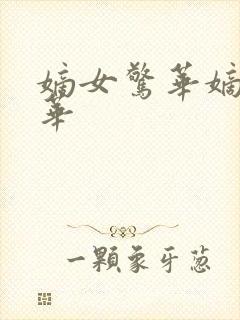 嫡女驚華嫡
華
一顆象牙蔥